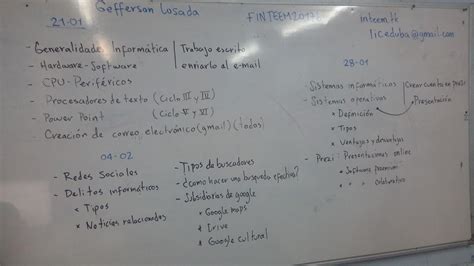 Gefferson Losada
FINTEEM2017
inteem.tk
lic.eduba@gmail.com
21-01
- Generalidades Informática
- Hardware-Software
Trabajo escrito
enviarlo al e-mail
- CPU-Periféricos
- Procesadores de texto (Ciclo III y IV)
- Power Point (Ciclo V y VI)
- Creación de correo electrónico (gmail) (todos)
28-01
- Sistemas informáticos
- Sistemas operativos
* Definición
* Tipos
* Ventajas y desventajas
Crear cuenta en prezi
* Presentación
- Prezi: Presentaciones online
* Software Premium
* " Colaborativo
04-02
- Redes Sociales
- Delitos informáticos
* Tipos
* Noticias relacionadas
- Tipos de buscadores
- ¿Como hacer una busqueda efectiva?
- Subsidiarias de google
* Google maps
* Drive
* Google cultural